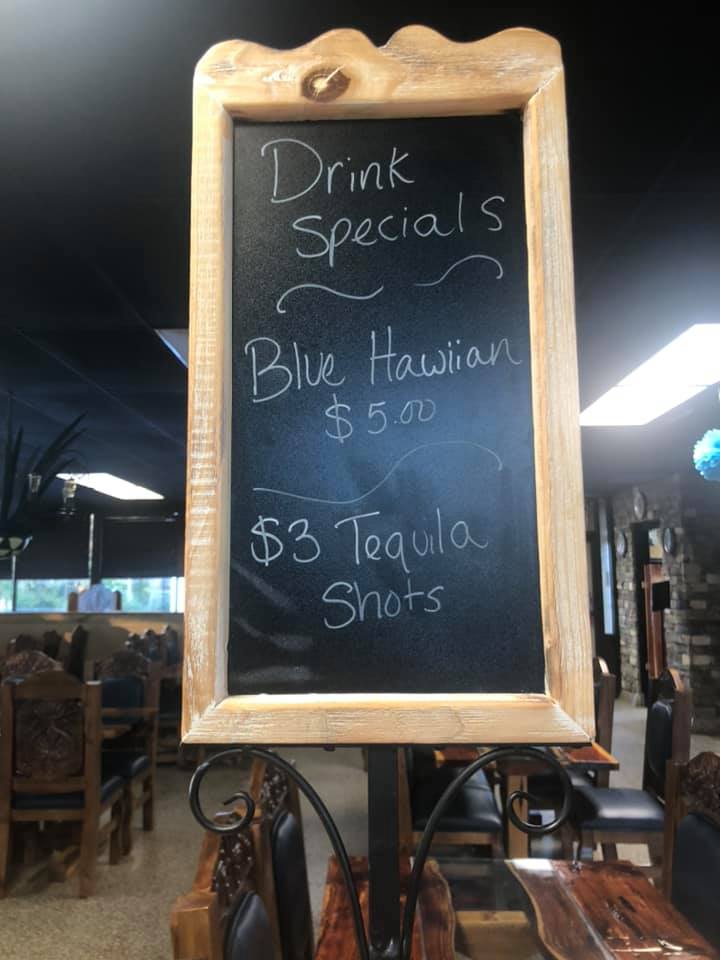 Drink
Specials
Blue Hawiian
$5.00
$3 Tequila
Shots